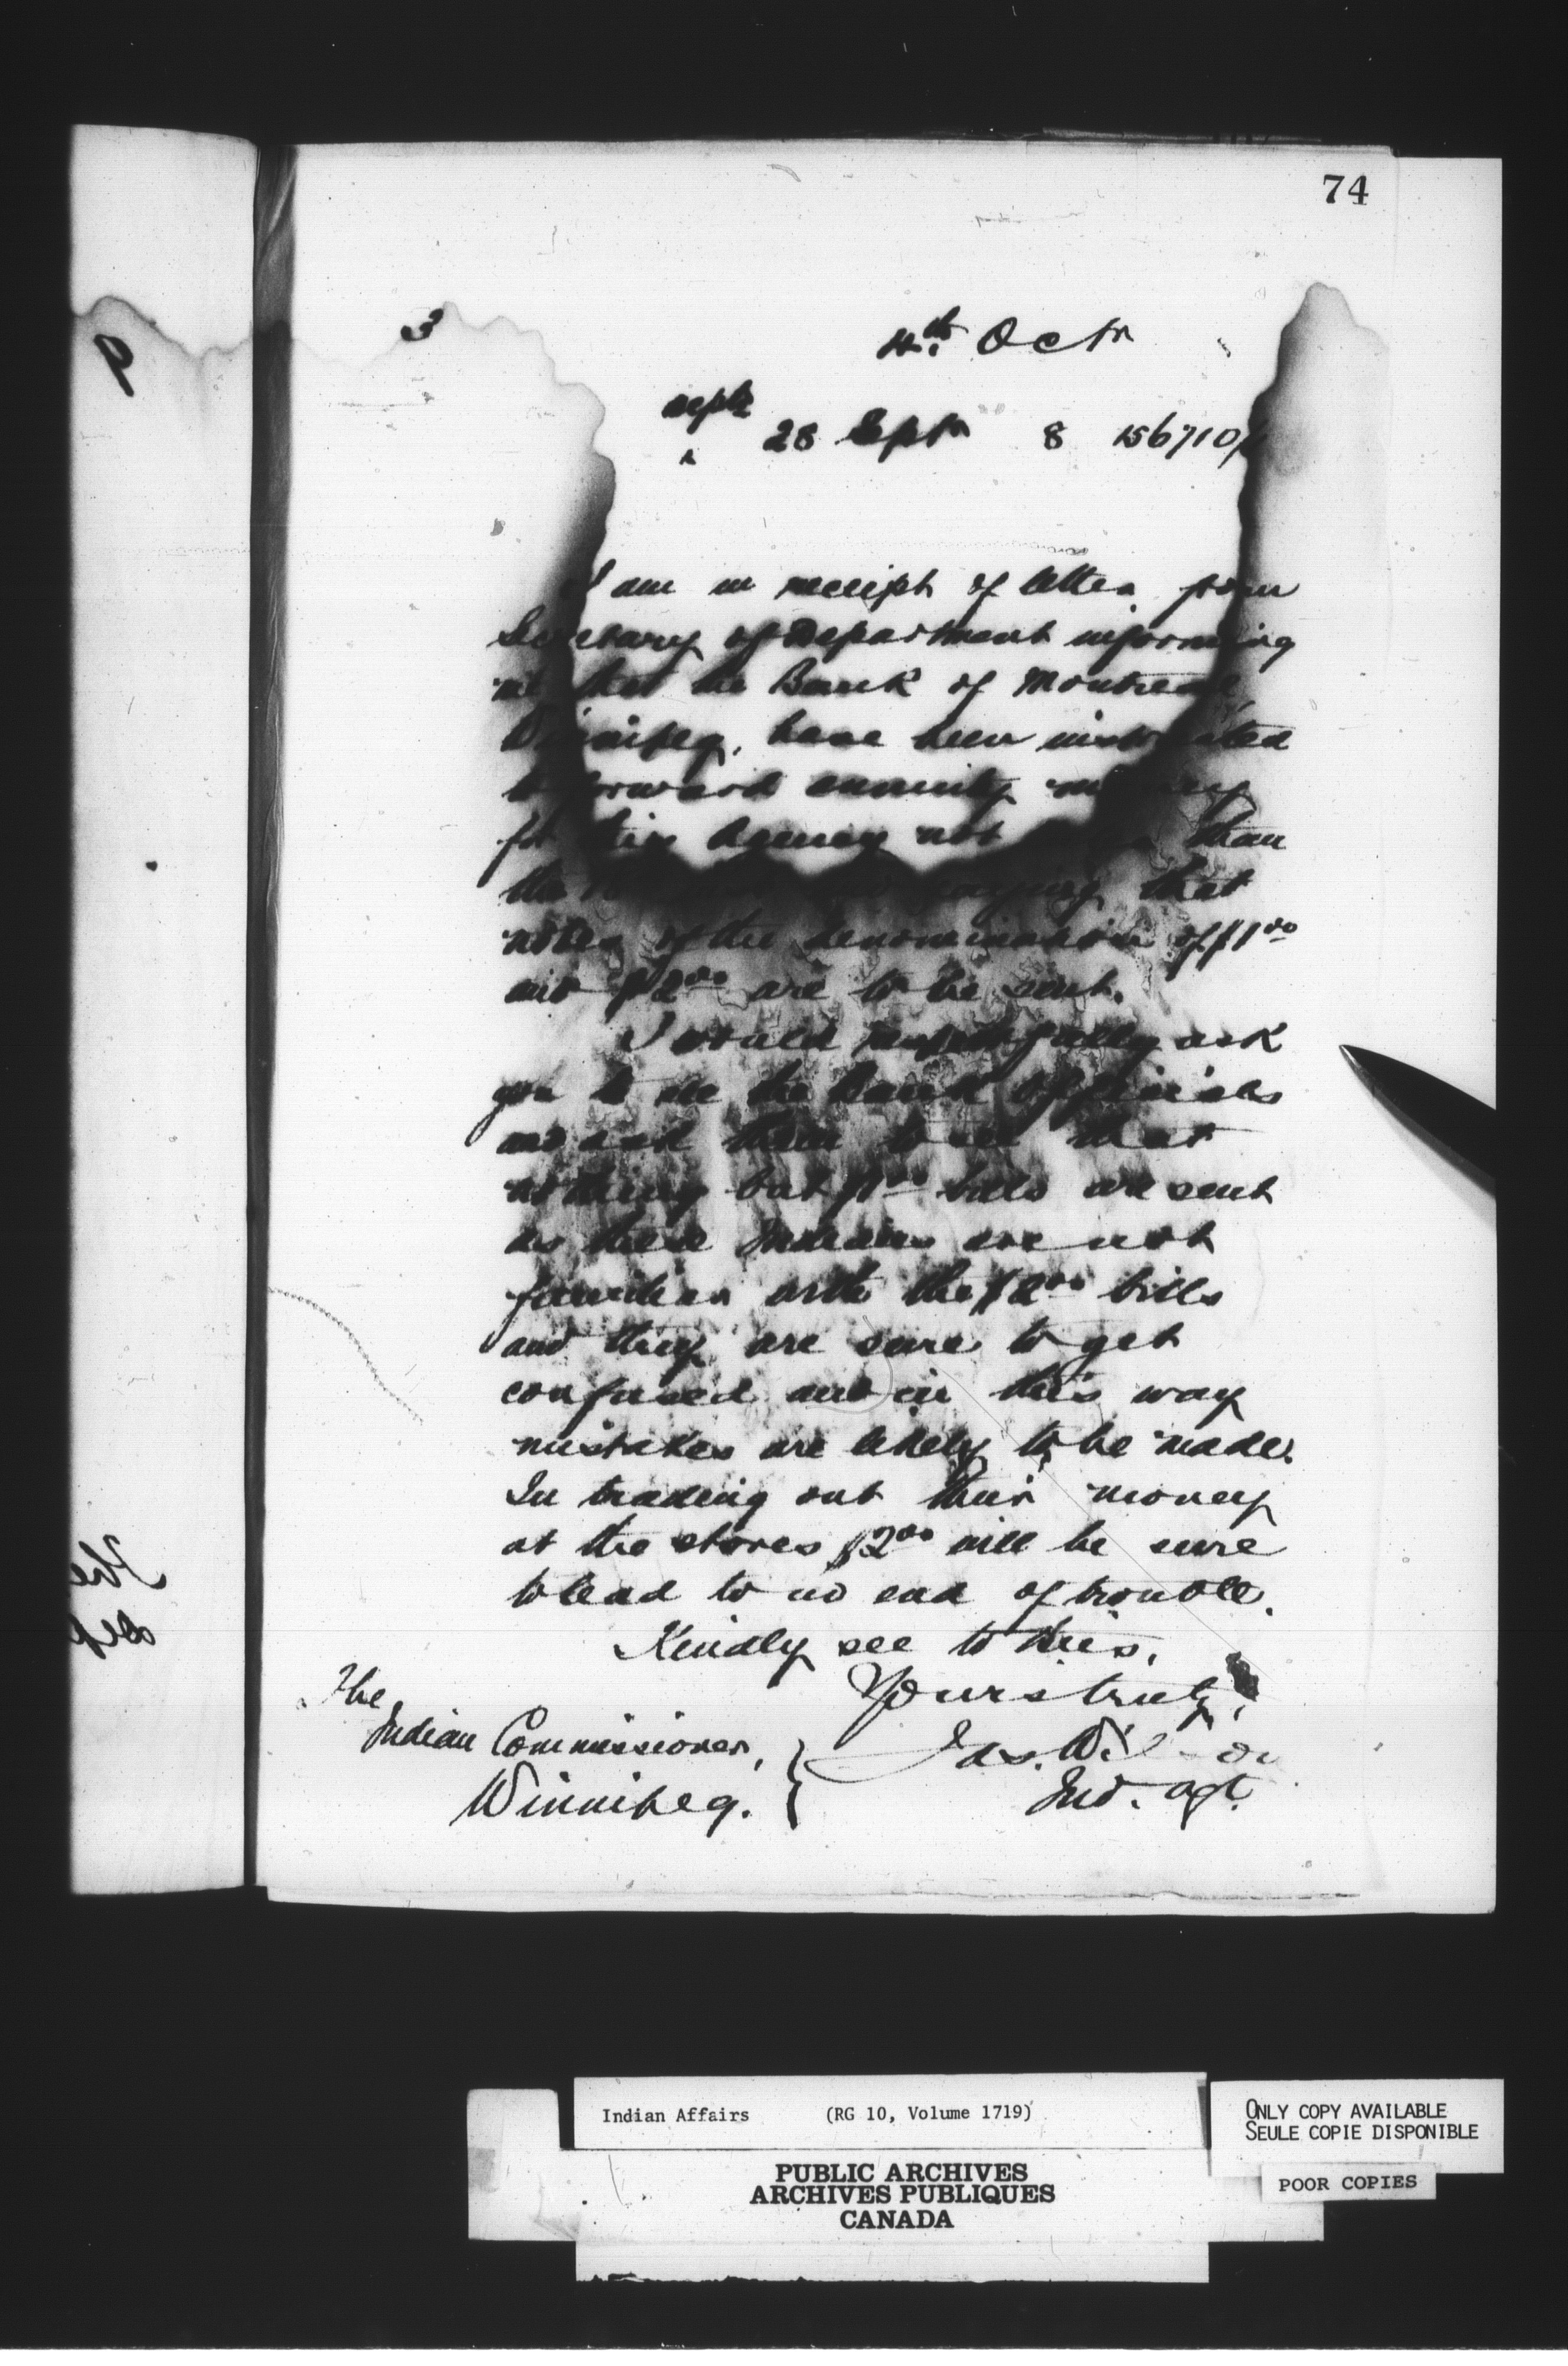 74
3
4th Octr
dept
28 Septr 8 156710/
I am in receipt of letter from
Secretary of Department informing
me that the Bank of Montreal,
Winnipeg, have been instructed
to forward annuity money
for this Agency not than
the saying that
notes of the denomination of $1.00
and $2.00 are to be sent.
I would respectfully ask
you to see the Bank officials
and ask them to see that
nothing but $1.00 bills are sent
as these Indians are not
familiar with the $2.00 bills
and they are sure to get
confused and in this way
mistakes are likely to be made.
In trading out their money
at the stores $2.00 will be sure
to lead to no end of trouble.
Kindly see to this.
Yours truly,
Jas. Wilson
Ind. Agt.
The
Indian Commissioner,
Winnipeg.
Indian Affairs (RG 10, Volume 1719)
PUBLIC ARCHIVES
ARCHIVES PUBLIQUES
CANADA
ONLY COPY AVAILABLE
SEULE COPIE DISPONIBLE
POOR COPIES